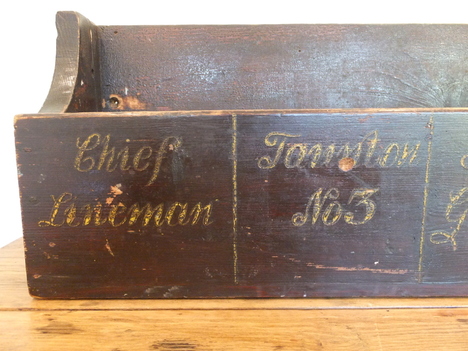 Chief
Lineman
Taunton
No 3